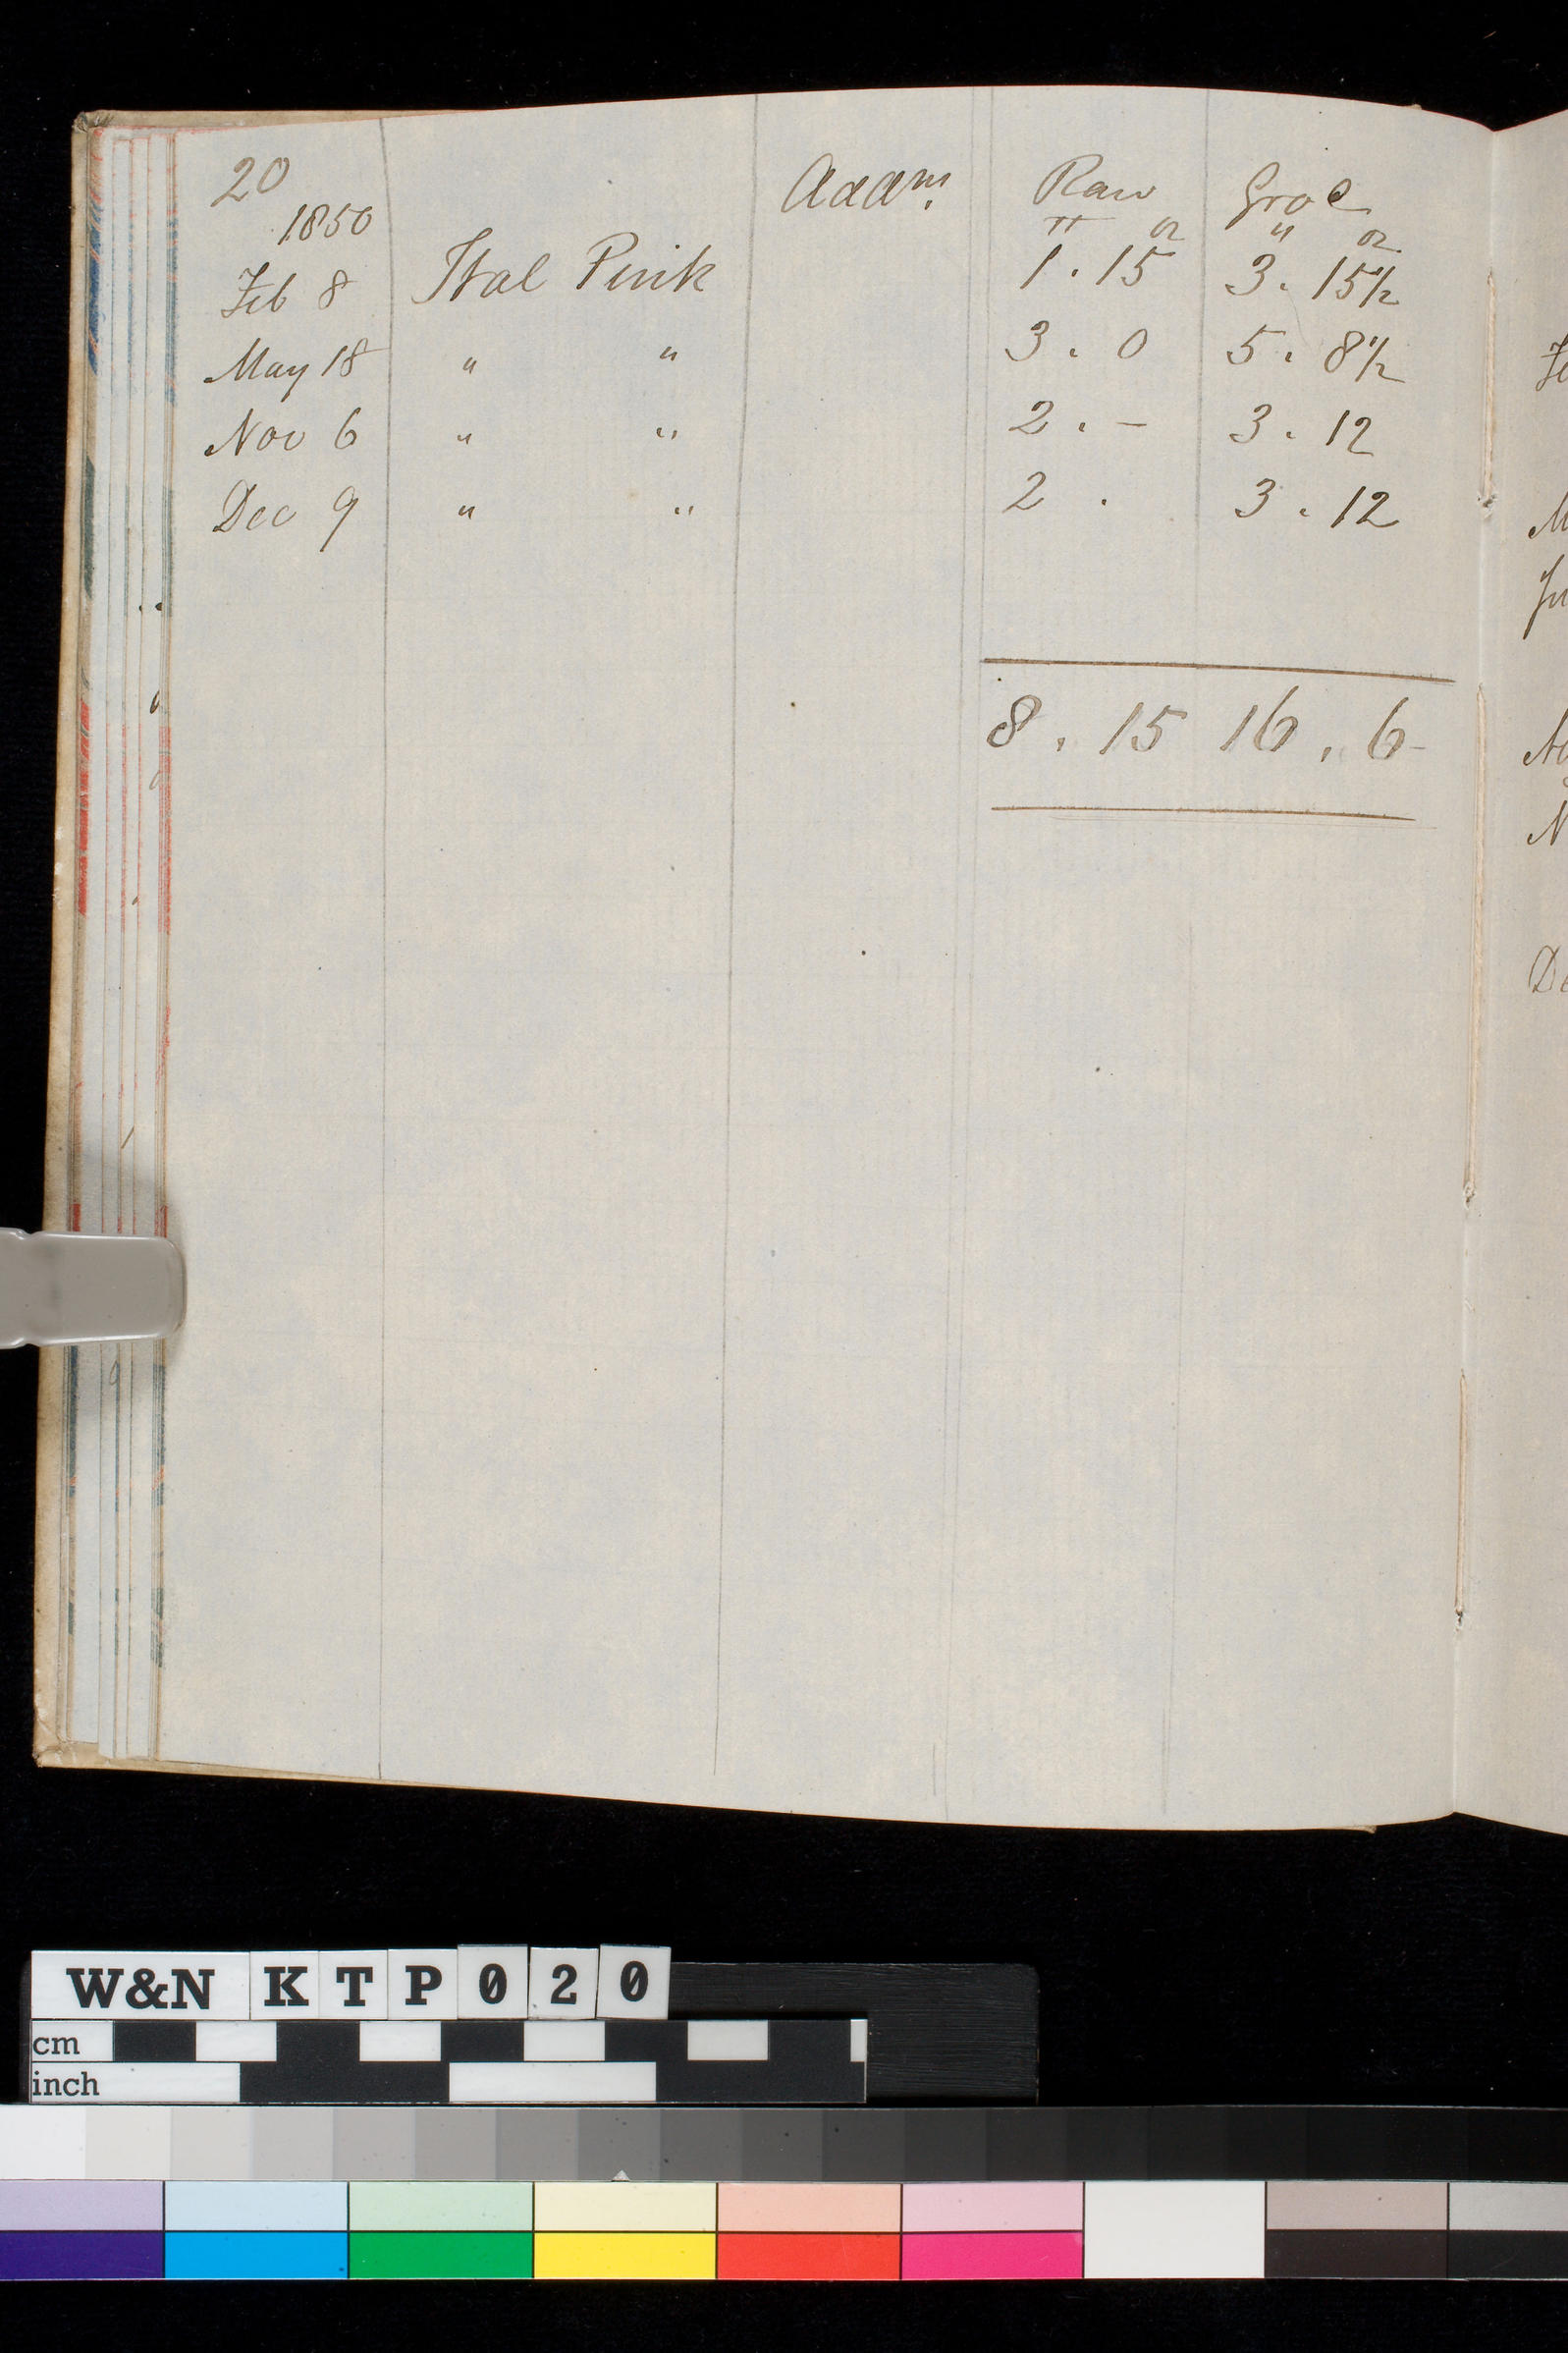 20 Addns. Raw Grod
1850 " oz " oz
Feb 8 Ital Pink 1 . 15 3 . 15½
May 18 " " 3 . 0 5 . 8½
Nov 6 " " 2 . - 3 . 12
Dec 9 " " 2 . 3 . 12
8 . 15 16 . 6 -
W&N KTP020
cm
inch